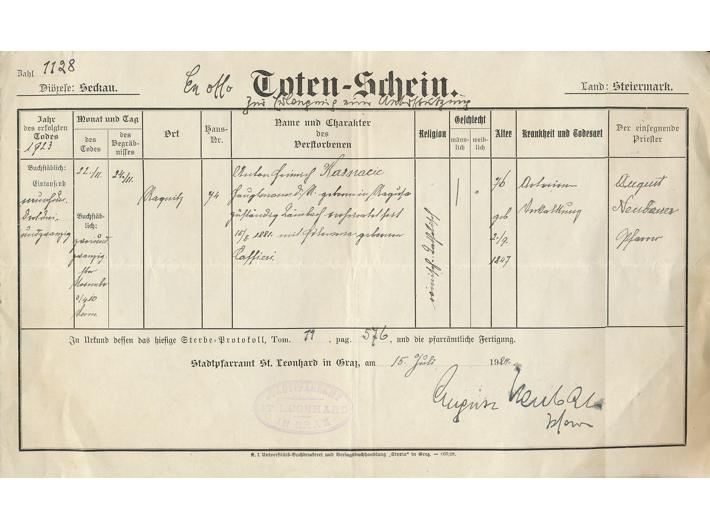 Zahl 1128
Diözese: Seckau.
Ex offo
Toten-Schein.
Land: Steiermark.
zur Erlangung einer Unterstützung
Jahr des erfolgten Todes
1923
Monat und Tag
des Todes
des Begräbnisses
Ort
Haus-Nr.
Name und Charakter
des
Verstorbenen
Religion
Geschlecht
männlich
weiblich
Alter
Krankheit und Todesart
Der einsegnende
Priester
Buchstäblich:
Eintausend
neunhundert
dreiundzwanzig
22./11.
Buchstäbl.:
24./11.
Ragnitz
74
Anton Heinrich Kasnacic
Hauptmann d. R. geboren in Ragusa
zuständig Laibach verheiratet seit
1881. mit geborene
Caffieri
römisch-katholisch
76
geb
2./9.
1847
Arterien
Verkalkung
August
Neubauer
Pfarrer
In Urkund dessen das hiesige Sterbe-Protokoll, Tom. 19 pag. 576, und die pfarrämtliche Fertigung.
Stadtpfarramt St. Leonhard in Graz, am 15. Juli 1924.
STADTPFARRAMT
ST. LEONHARD
IN GRAZ
August Neubauer
Pfarrer
K. k. Universitäts-Buchdruckerei und Verlagsbuchhandlung „Styria“ in Graz. —